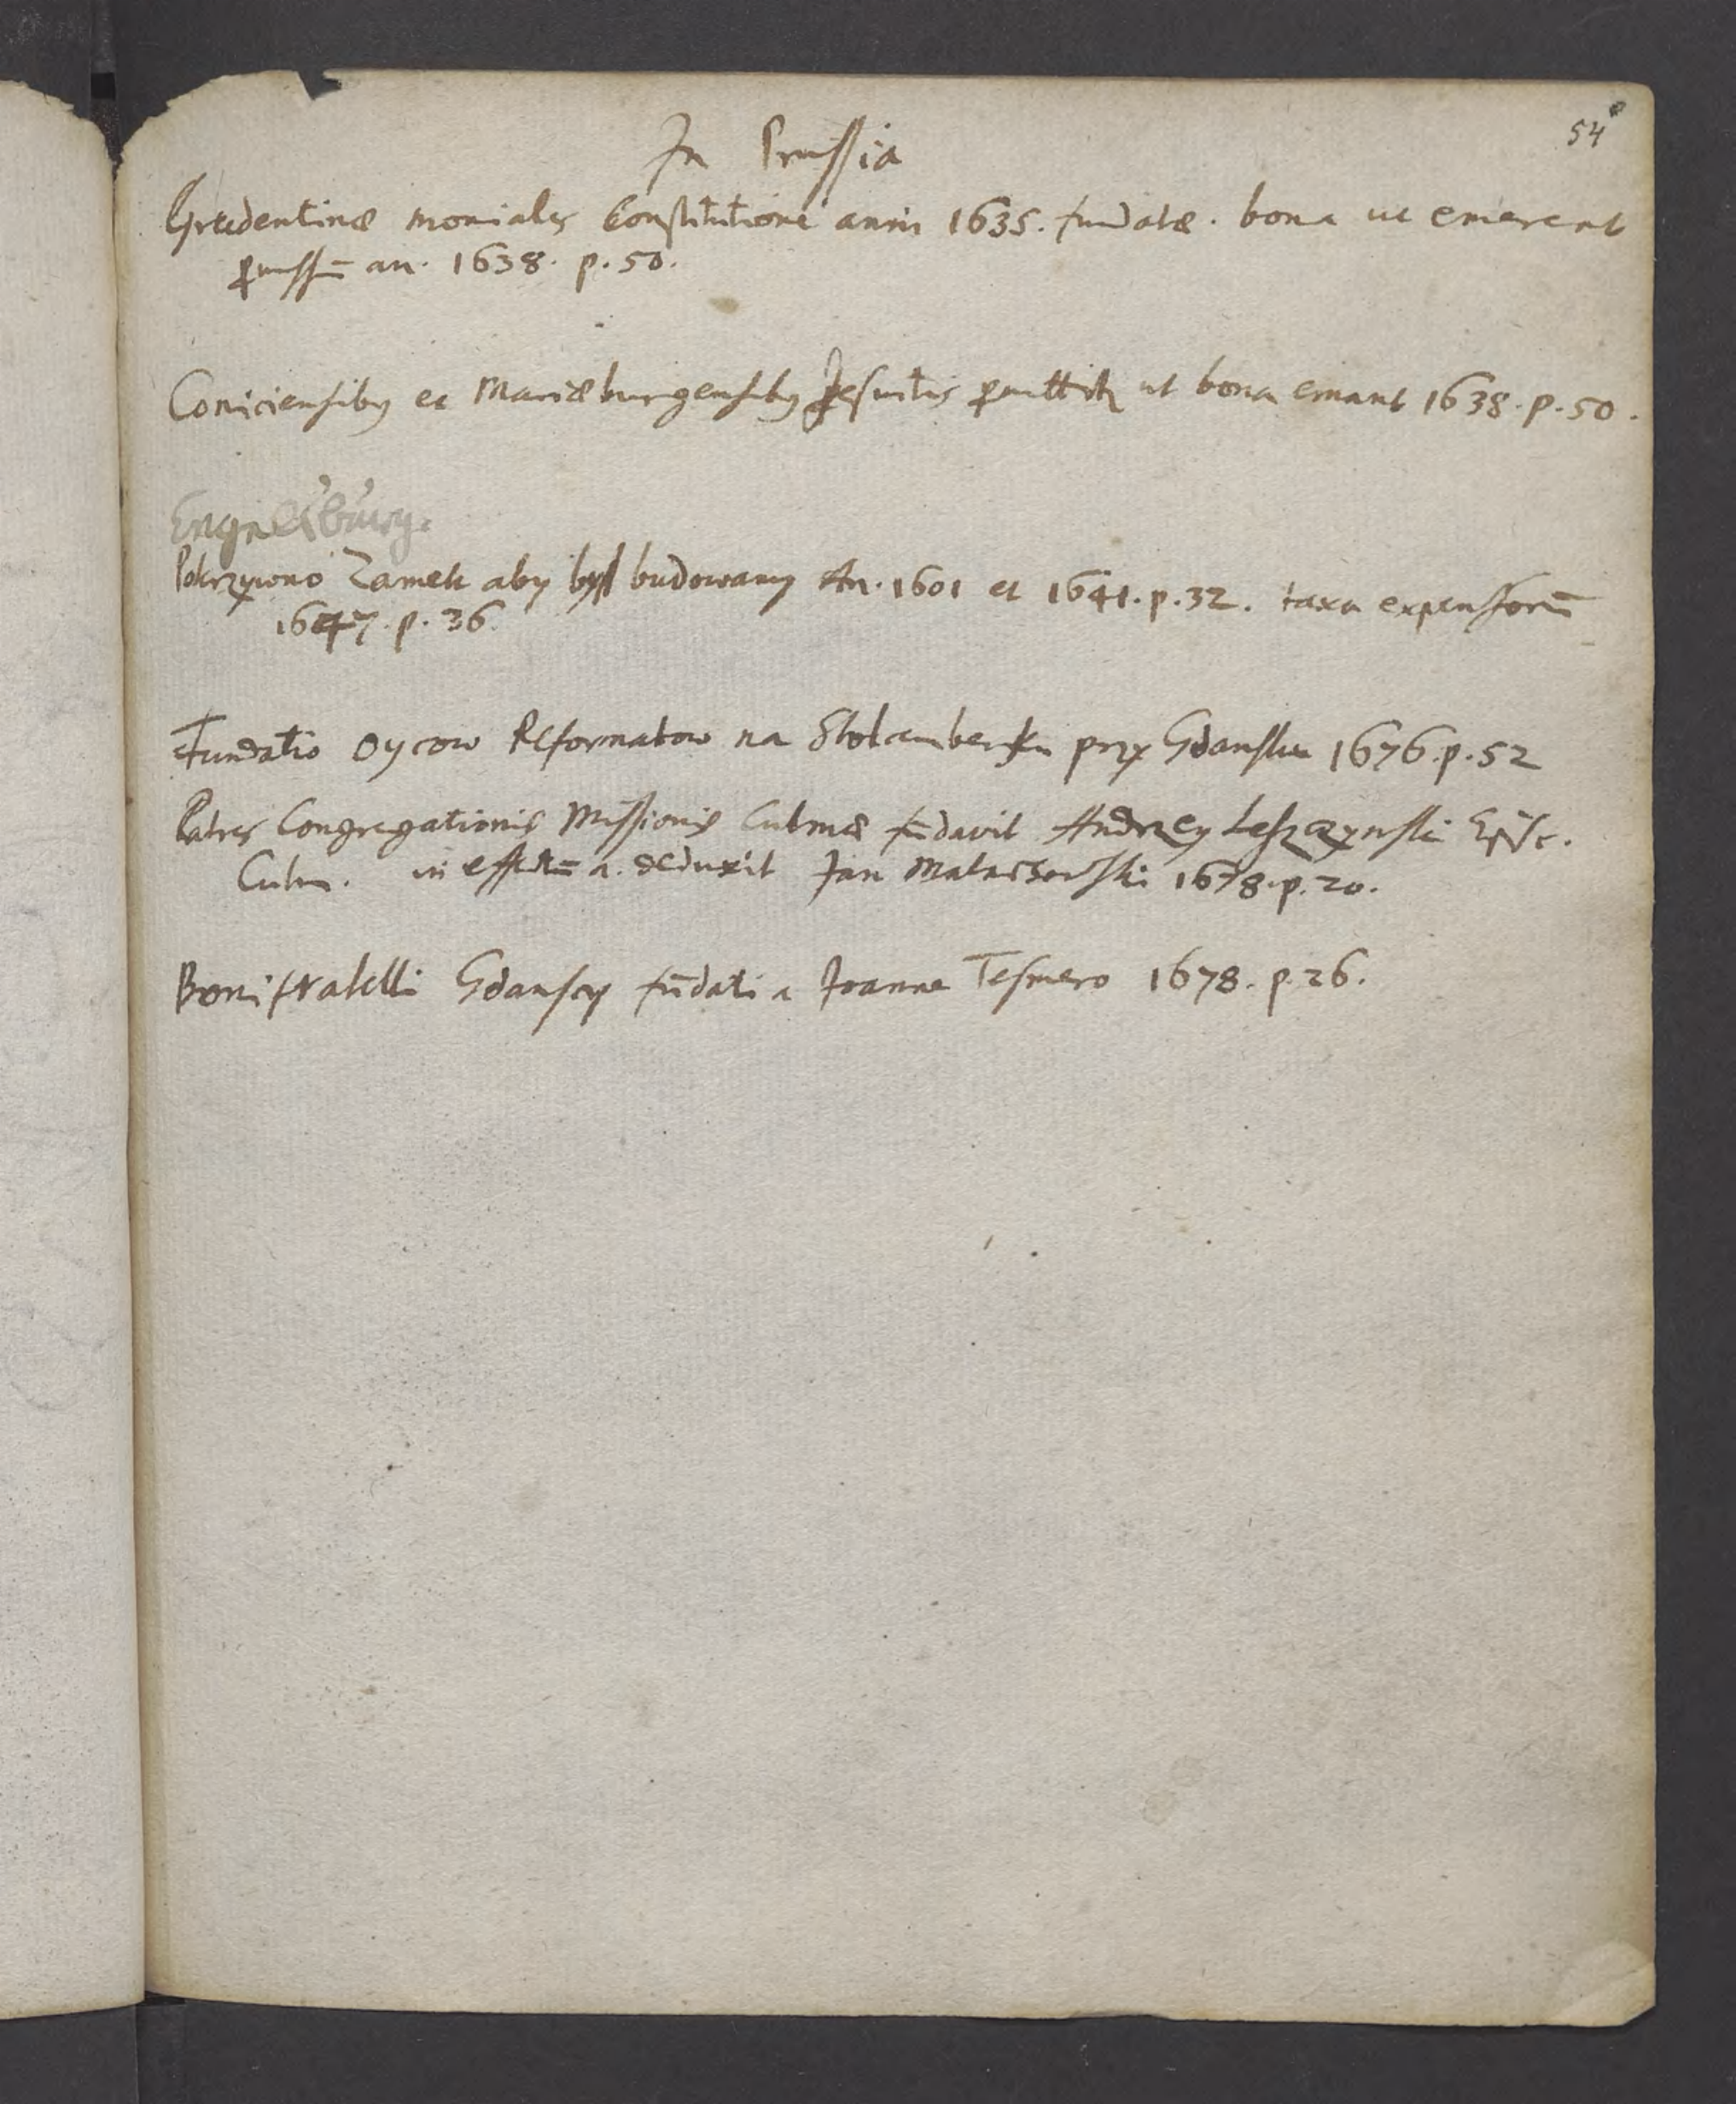 54
In Prussia
Grudentinæ moniales Constitutione anni 1635. fundatæ. bona ut emerent
p̱missū an. 1638. p. 50.
Coniciensibꝯ et Mariæburgensibꝯ Jesuitis p̱mittitꝛ ut bona emant 1638. p. 50.
Engelsburg.
Pokrzywno Zamek aby był budowany An. 1601 et 1641. p. 32. taxa expensorū
1647. p. 36.
Fundatio Oycow Reformatow na przy Gdansku 1676. p. 52
Patres Congregationis Missionis Culmæ fūdavit Andrzey Leszczynski Episc.
Culm. in effectū a. deduxit Jan Malachowski 1678. p. 20.
Bonifratelli Gdanscy fūdati a Joanne Tesmero 1678. p. 26.